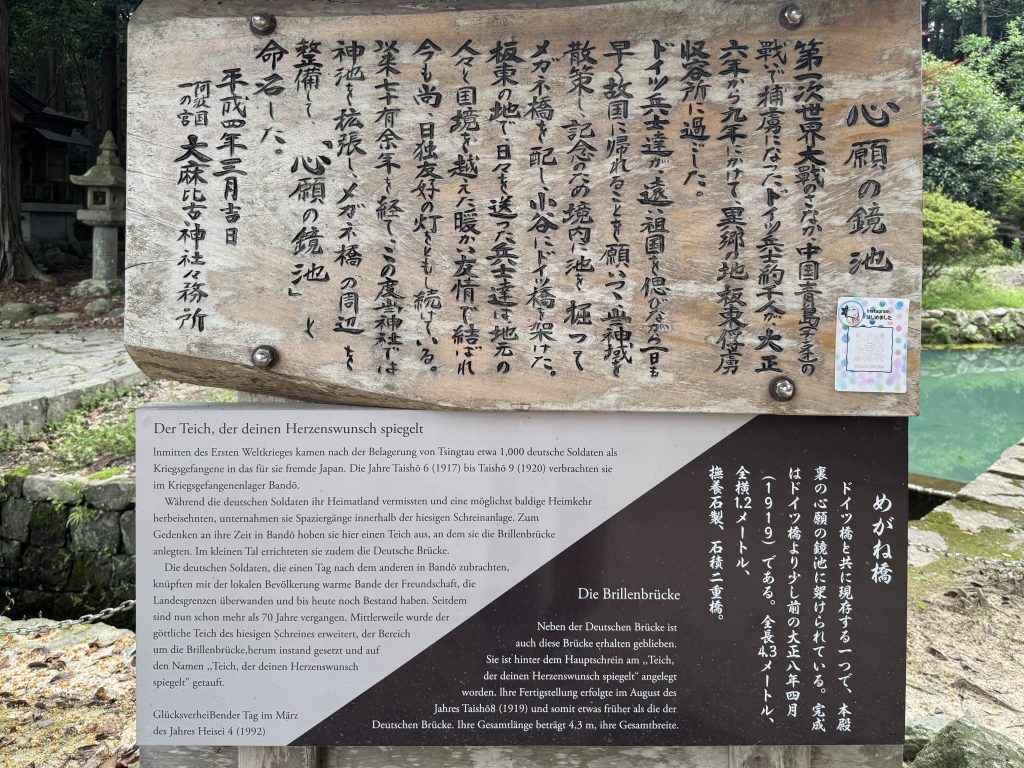 心願の鏡池
第一次世界大戦のさなか、中国青島の
戦で捕虜になったドイツ兵士約千人が、大正
六年から九年にかけて、異郷の地、板東俘虜
収容所に過ごした。
ドイツ兵士達が、遠い祖国を偲びながら一日も
早く故国に帰れることを願いつつ、神域を
散策し、記念のため境内に池を掘って
メガネ橋を配し、小谷にドイツ橋を架けた。
板東の地で日々を送った兵士達は地元の
人々と国境を越えた暖かい友情で結ばれ
今も尚、日独友好の灯をともし続けている。
以来七十有余年を経て、この度当神社では
神池を拡張し、メガネ橋の周辺を
整備して「心願の鏡池」と
命名した。
平成四年三月吉日
阿波国一の宮 大麻比古神社々務所
Instagram
はじめました
Der Teich, der deinen Herzenswunsch spiegelt
Inmitten des Ersten Weltkrieges kamen nach der Belagerung von Tsingtau etwa 1,000 deutsche Soldaten als
Kriegsgefangene in das für sie fremde Japan. Die Jahre Taishō 6 (1917) bis Taishō 9 (1920) verbrachten sie
im Kriegsgefangenenlager Bandō.
Während die deutschen Soldaten ihr Heimatland vermissten und eine möglichst baldige Heimkehr
herbeisehnten, unternahmen sie Spaziergänge innerhalb der hiesigen Schreinanlage. Zum
Gedenken an ihre Zeit in Bandō hoben sie hier einen Teich aus, an dem sie die Brillenbrücke
anlegten. Im kleinen Tal errichteten sie zudem die Deutsche Brücke.
Die deutschen Soldaten, die einen Tag nach dem anderen in Bandō zubrachten,
knüpften mit der lokalen Bevölkerung warme Bande der Freundschaft, die
Landesgrenzen überwanden und bis heute noch Bestand haben. Seitdem
sind nun schon mehr als 70 Jahre vergangen. Mittlerweile wurde der
göttliche Teich des hiesigen Schreines erweitert, der Bereich
um die Brillenbrücke,herum instand gesetzt und auf
den Namen ,,Teich, der deinen Herzenswunsch
spiegelt" getauft.
Glücksverheißender Tag im März
des Jahres Heisei 4 (1992)
Die Brillenbrücke
Neben der Deutschen Brücke ist
auch diese Brücke erhalten geblieben.
Sie ist hinter dem Hauptschrein am ,,Teich,
der deinen Herzenswunsch spiegelt" angelegt
worden. Ihre Fertigstellung erfolgte im August des
Jahres Taishō8 (1919) und somit etwas früher als die der
Deutschen Brücke. Ihre Gesamtlänge beträgt 4,3 m, ihre Gesamtbreite.
めがね橋
ドイツ橋と共に現存する一つで、本殿
裏の心願の鏡池に架けられている。完成
はドイツ橋より少し前の大正八年四月
(1919)である。全長4.3メートル、
全横1.2メートル、
撫養石製、石積二重橋。